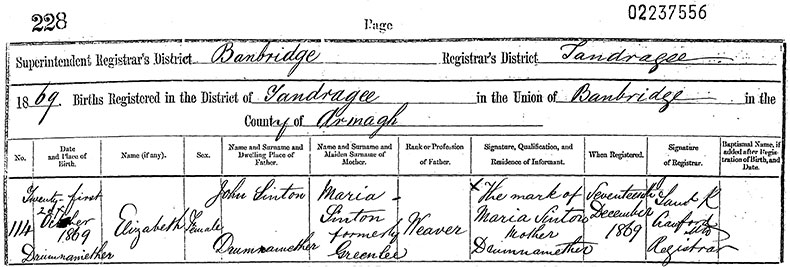 228 Page 02237556
Superintendent Registrar's District Banbridge Registrar's District Tandragee
1869. Births Registered in the District of Tandragee in the Union of Banbridge in the
County of Armagh
No. Date and Place of Birth. Name (if any). Sex. Name and Surname and Dwelling Place of Father. Name and Surname and Maiden Surname of Mother. Rank or Profession of Father. Signature, Qualification, and Residence of Informant. When Registered. Signature of Registrar. Baptismal Name, if added after Registration of Birth, and Date.
114 Twenty-first October 1869 Drumnamether Elizabeth Female John Sinton Drumnamether Maria Sinton formerly Greenlee Weaver X The mark of Maria Sinton Mother Drumnamether Seventeenth December 1869 Crawford Registrar